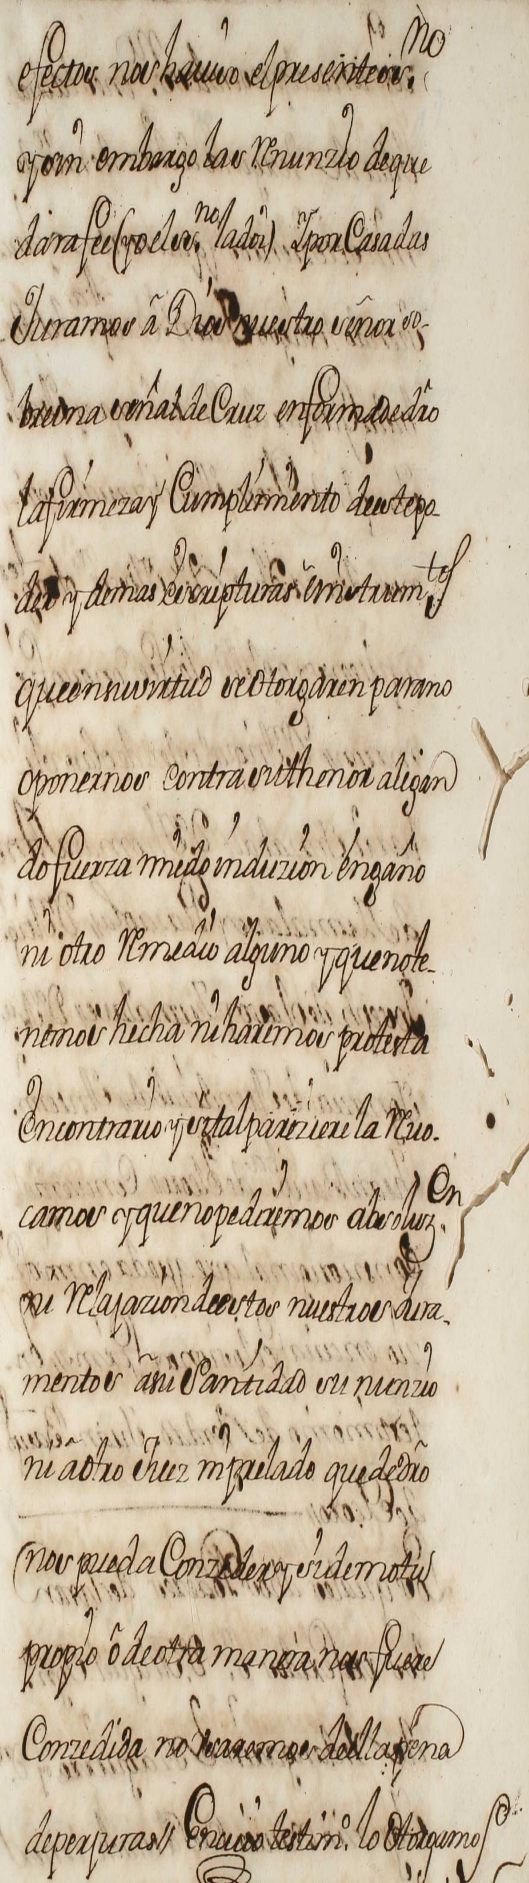 efectos nos havivo el presente ess.no
y sin embargo las Renunzio de que
dara fee (yo el ess.no la doi) Y por Casadas
Juramos â Dios nuestro señor so-
bre una señal de Cruz en forma de dro
la firmeza y Cumplimiento de este po-
der y demas escripturas e instrumtos
que en su virtud se Otorgaren para no
oponernos contra su thenor alegan
do fuerza miedo induzion engaño
ni otro Remedio alguno y que no te-
nemos hecha ni haremos protesta
En contrario y si tal pareziere la Revo-
camos y que no pediremos absoluz.on
ni Relajazion de estos nuestros Jura-
mentos a su Santidad su nunzio
ni a otro Juez ni prelado que de dro
nos pueda Conzeder y si de motu
propio ô de otra manera nos fuere
Conzedida no usaremos de ella pena
de perjuras // En cuio testim.o lo Otorgamos